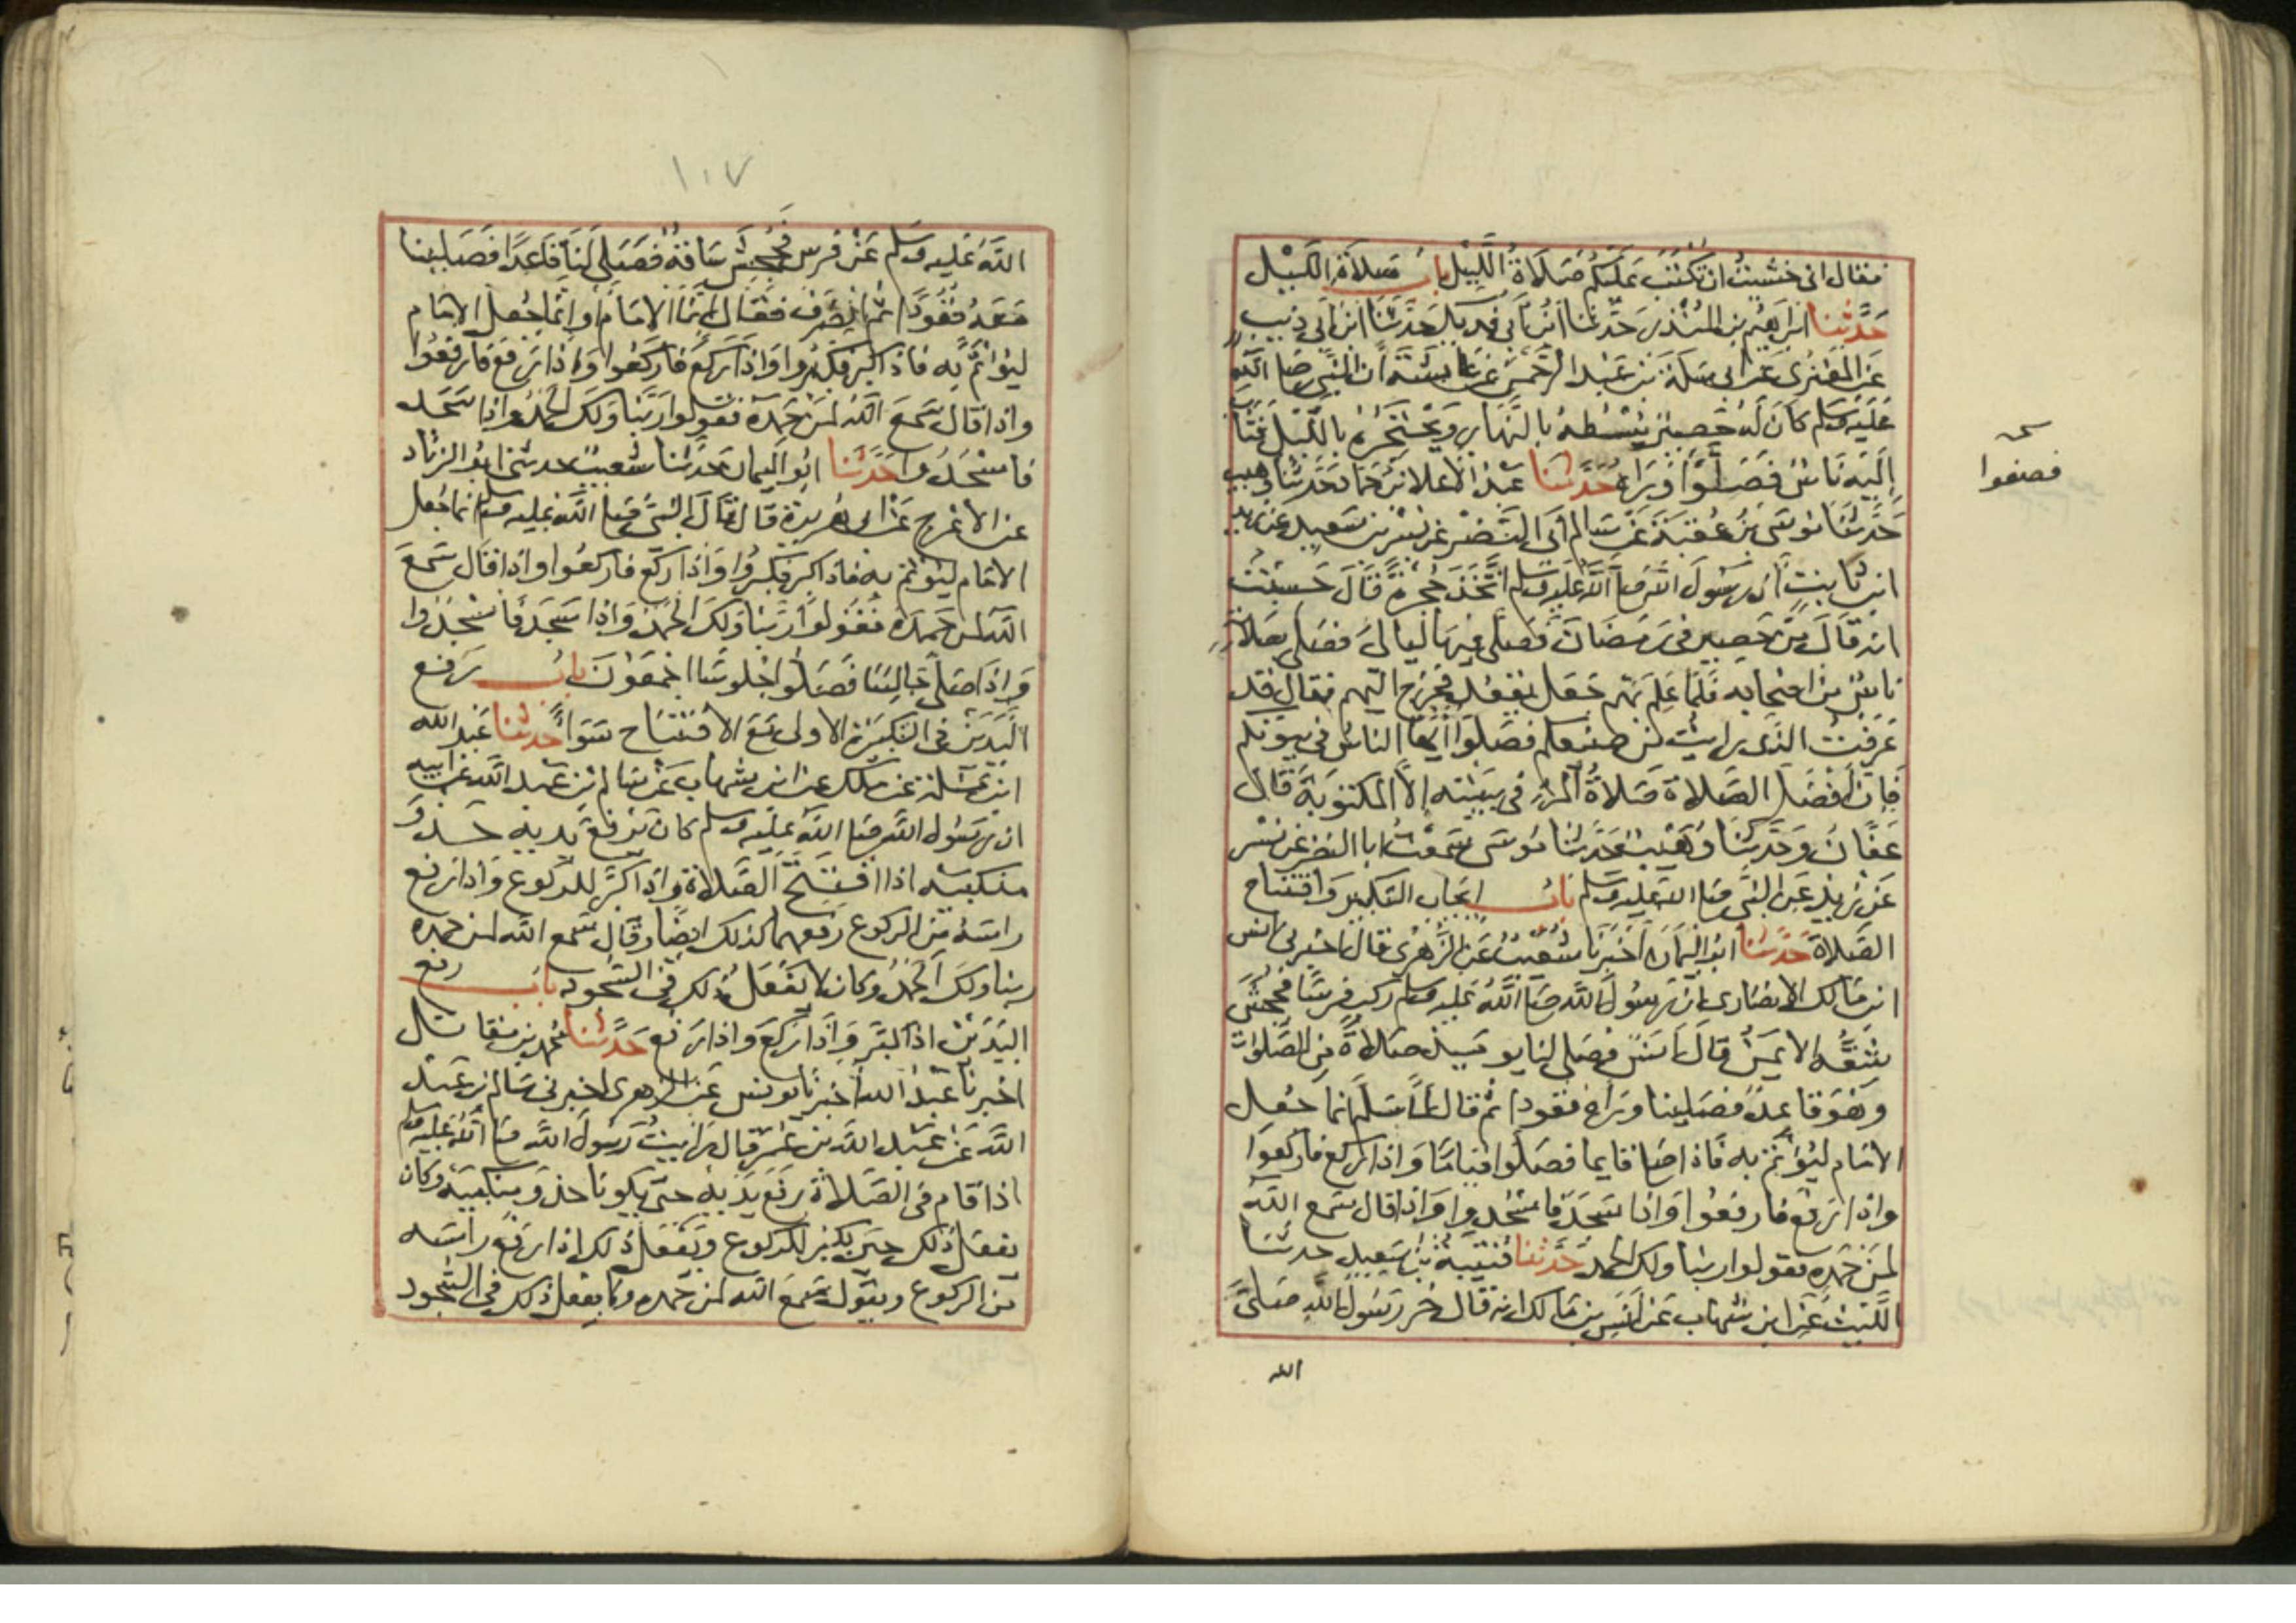 فقال اني خشيت ان تكتب عليكم صلاة الليل باب صلاة الليل
حدثنا ابراهيم بن المنذر حدثنا ابن ابي فديك حدثنا ابن ابي ذيب
عن المقبري عن ابي سلمة بن عبد الرحمن عن عايشة ان النبي صلى الله
عليه وسلم كان له حصير يبسطه بالنهار ويحتجره بالليل فثاب
اليه ناس فصلوا وراءه حدثنا عبد الاعلا بن حماد حدثنا وهيب
حدثنا موسى بن عقبة عن سالم ابي النضر عن بسر بن سعيد عن زيد
ابن ثابت ان رسول الله صلى الله عليه وسلم اتخذ حجرة قال حسبت
انه قال من حصير في رمضان فصلى فيها ليالي فصلى بصلاته
ناس من اصحابه فلما علم بهم جعل يقعد فخرج اليهم فقال قد
عرفت الذي رايت من صنيعكم فصلوا ايها الناس في بيوتكم
فان افضل الصلاة صلاة المرء في بيته الا المكتوبة قال
عفان وحدثنا وهيب حدثنا موسى سمعت ابا النضر عن بسر
عن زيد عن النبي صلى الله عليه وسلم باب ايجاب التكبير وافتتاح
الصلاة حدثنا ابو اليمان اخبرنا شعيب عن الزهري قال اخبرني انس
ابن مالك الانصاري ان رسول الله صلى الله عليه وسلم ركب فرسا فجحش
شقه الايمن قال انس فصلى لنا يوميذ صلاة من الصلوات
وهو قاعد فصلينا وراه قعودا ثم قال لما سلم انما جعل
الامام ليؤتم به فاذا صلى قايما فصلوا قياما واذا ركع فاركعوا
واذا رفع فارفعوا واذا سجد فاسجدوا واذا قال سمع الله
لمن حمده فقولوا ربنا ولك الحمد حدثنا قتيبة بن سعيد حدثنا
الليث عن ابن شهاب عن انس بن مالك انه قال خر رسول الله صلى
الله
صح
فصفوا
١٠٧
الله عليه وسلم عن فرس فجحش ساقه فصلى لنا قاعدا فصلينا
معه قعودا ثم انصرف فقال انما الامام او انما جعل الامام
ليؤتم به فاذا كبر فكبروا واذا ركع فاركعوا واذا رفع فارفعوا
واذا قال سمع الله لمن حمده فقولوا ربنا ولك الحمد واذا سجد
فاسجدوا حدثنا ابو اليمان حدثنا شعيب حدثني ابو الزناد
عن الاعرج عن ابي هريرة قال قال النبي صلى الله عليه وسلم انما جعل
الامام ليؤتم به فاذا كبر فكبروا واذا ركع فاركعوا واذا قال سمع
الله لمن حمده فقولوا ربنا ولك الحمد واذا سجد فاسجدوا
واذا صلى جالسا فصلوا جلوسا اجمعون باب رفع
اليدين في التكبيرة الاولى مع الافتتاح سوا حدثنا عبد الله
ابن مسلمة عن ملك عن ابن شهاب عن سالم بن عبد الله عن ابيه
ان رسول الله صلى الله عليه وسلم كان يرفع يديه حذو
منكبيه اذا افتتح الصلاة واذا كبر للركوع واذا رفع
راسه من الركوع رفعهما كذلك ايضا وقال سمع الله لمن حمده
ربنا ولك الحمد وكان لا يفعل ذلك في السجود باب رفع
اليدين اذا كبر واذا ركع واذا رفع حدثنا محمد بن مقاتل
اخبرنا عبد الله اخبرنا يونس عن الزهري اخبرني سالم بن عبد
الله عن عبد الله بن عمر قال رايت رسول الله صلى الله عليه وسلم
اذا قام في الصلاة رفع يديه حتى يكونا حذو منكبيه وكان
يفعل ذلك حين يكبر للركوع ويفعل ذلك اذا رفع راسه
من الركوع ويقول سمع الله لمن حمده ولا يفعل ذلك في السجود